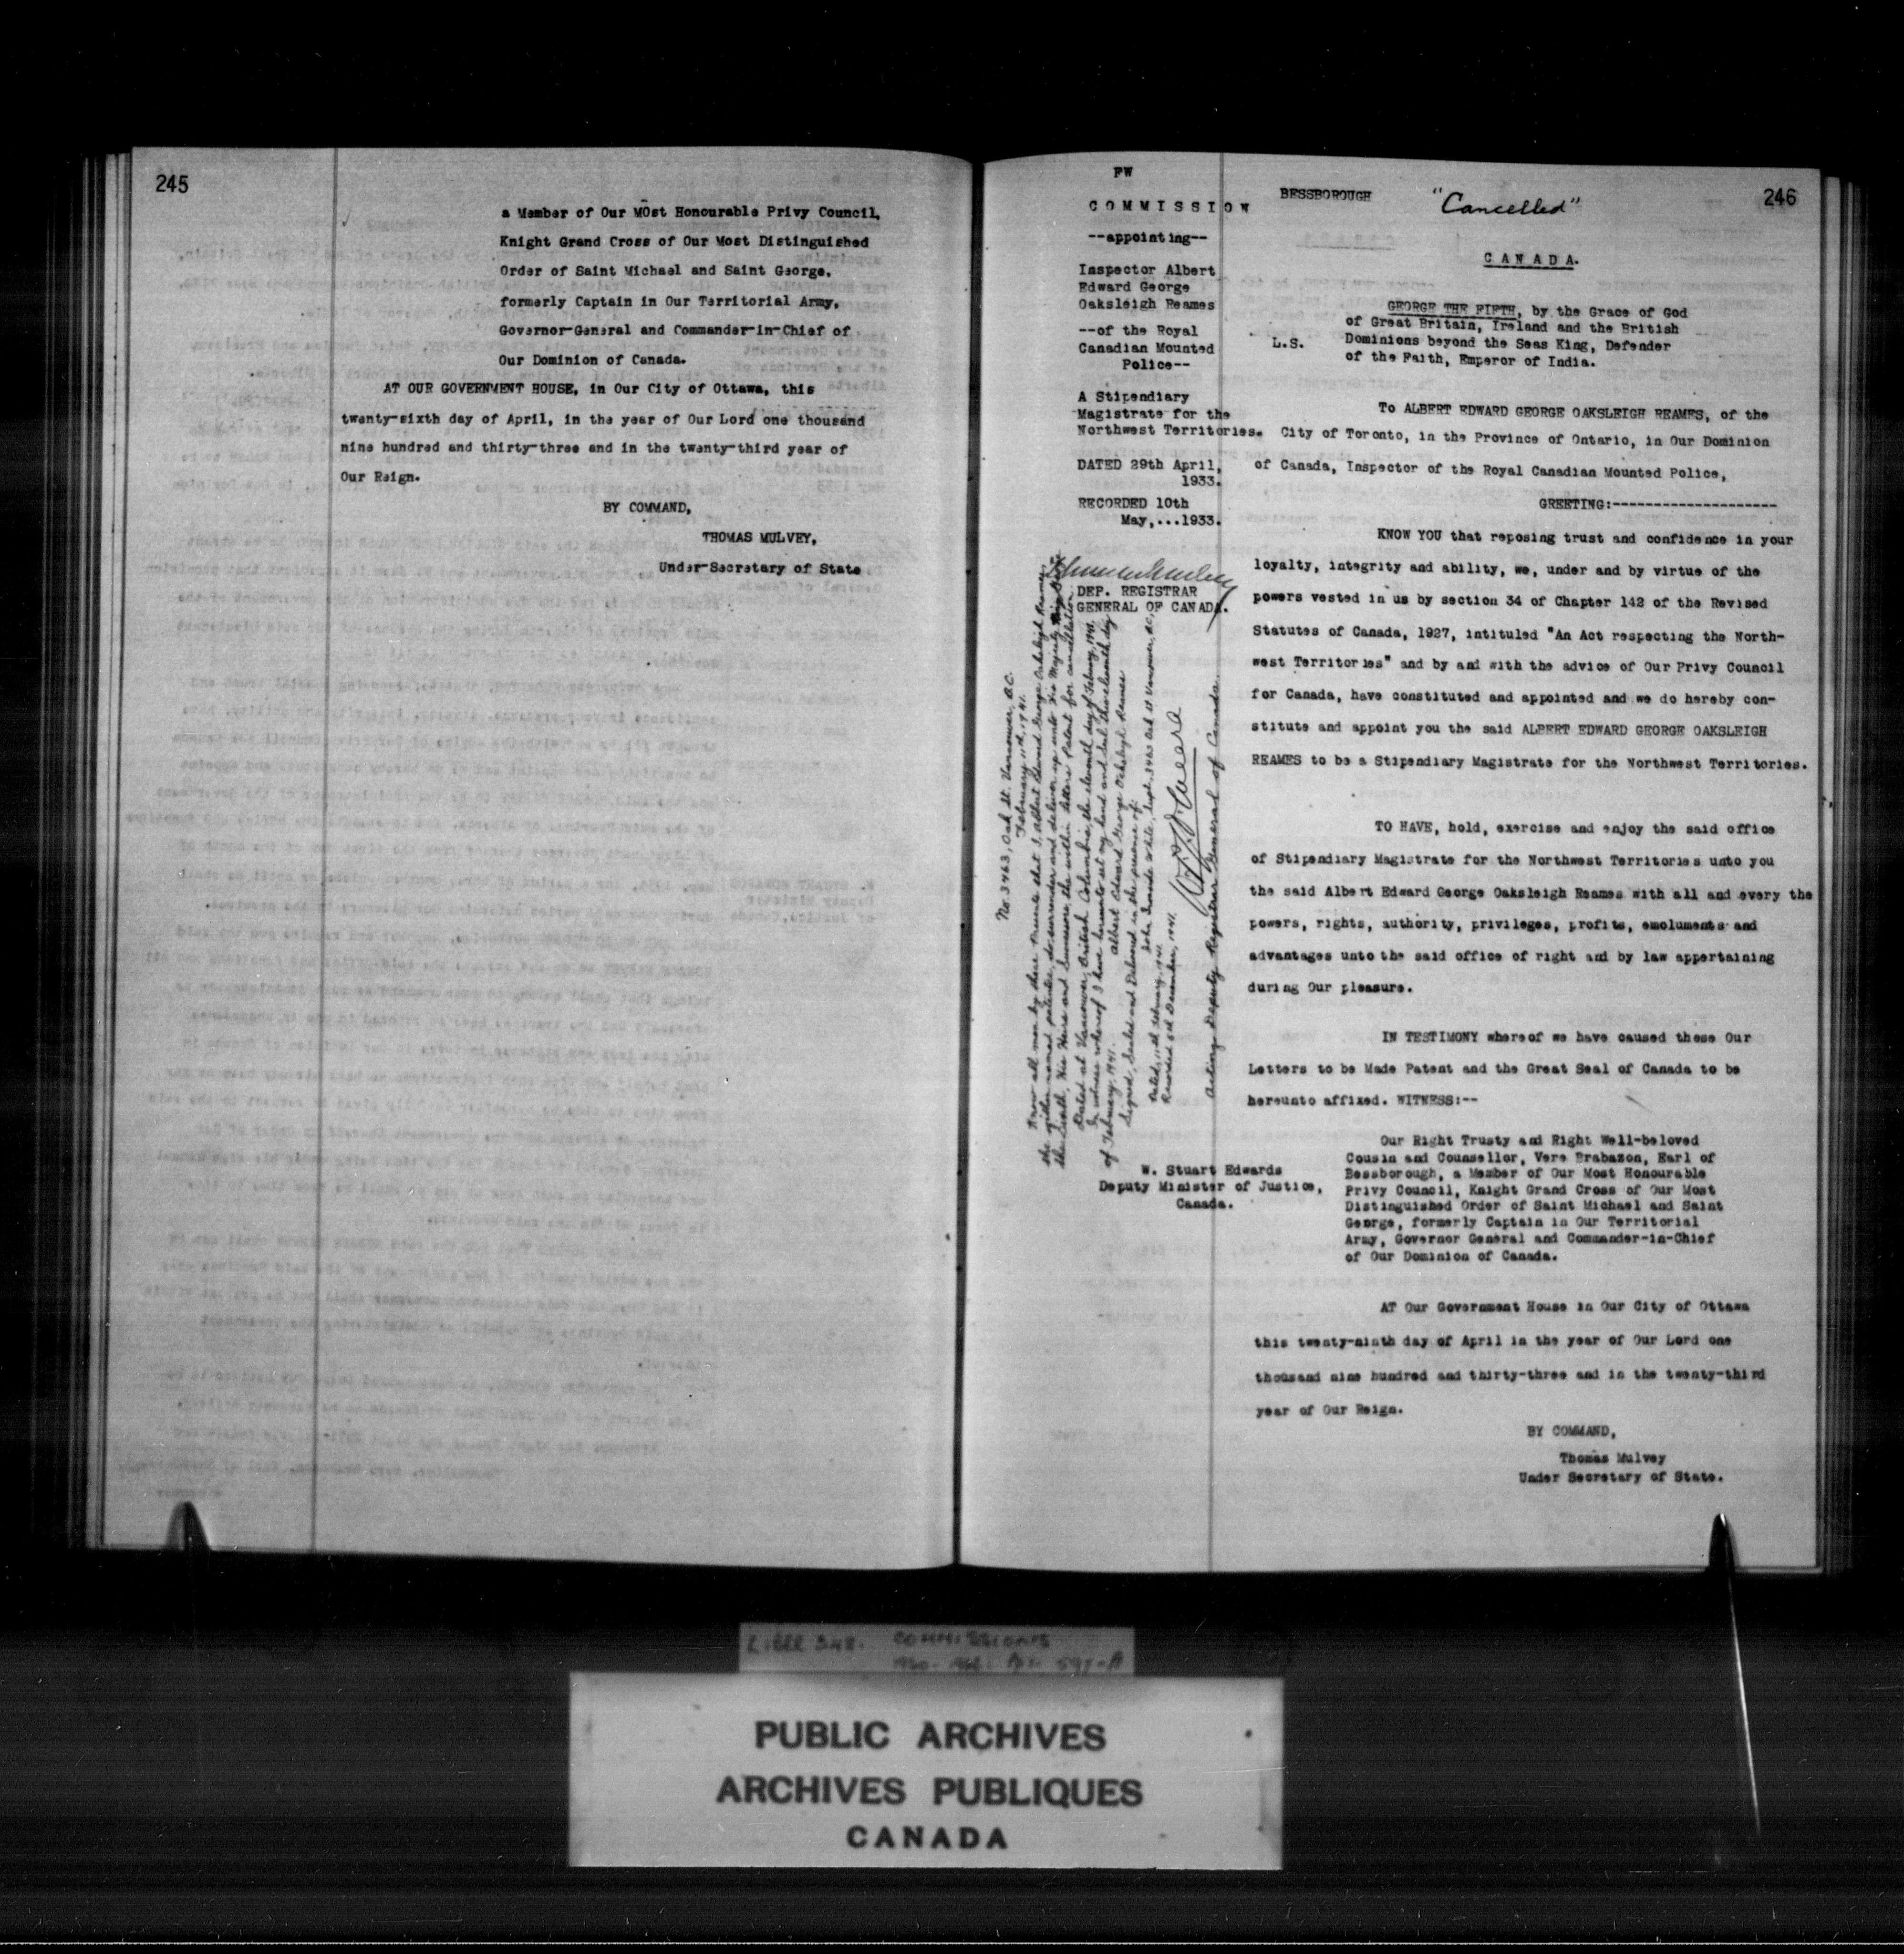 245
a Member of Our MOst Honourable Privy Council,
Knight Grand Cross of Our Most Distinguished
Order of Saint Michael and Saint George,
formerly Captain in Our Territorial Army,
Governor-General and Commander-in-Chief of
Our Dominion of Canada.
AT OUR GOVERNMENT HOUSE, in Our City of Ottawa, this
twenty-sixth day of April, in the year of Our Lord one thousand
nine hundred and thirty-three and in the twenty-third year of
Our Reign.
BY COMMAND,
THOMAS MULVEY,
Under-Secretary of State
PW
COMMISSION
--appointing--
Inspector Albert
Edward George
Oaksleigh Reames
--of the Royal
Canadian Mounted
Police--
A Stipendiary
Magistrate for the
Northwest Territories.
DATED 29th April,
1933.
RECORDED 10th
May,...1933.
DEP. REGISTRAR
GENERAL OF CANADA.
No. 3463, Oak St. Vancouver, B.C.
February 11th, 1941.
Know all men by these Presents that I, Albert Edward George Oaksleigh Reames
the within named patentee, do surrender and deliver up unto His Majesty
the Sixth, His Heirs and Successors, the within Letters Patent for cancellation.
Dated at Vancouver, British Columbia, the eleventh day of February, 1941.
In witness whereof I have hereunto set my hand and seal this eleventh day
of February, 1941.
Albert Edward George Oaksleigh Reames
Signed, Sealed and Delivered in the presence of
Dated, 11th February, 1941.
Recorded 5th December, 1941.
Acting Deputy Registrar General of Canada.
W. Stuart Edwards
Deputy Minister of Justice,
Canada.
BESSBOROUGH
"Cancelled"
246
CANADA.
GEORGE THE FIFTH, by the Grace of God
of Great Britain, Ireland and the British
L.S. Dominions beyond the Seas King, Defender
of the Faith, Emperor of India.
To ALBERT EDWARD GEORGE OAKSLEIGH REAMES, of the
City of Toronto, in the Province of Ontario, in Our Dominion
of Canada, Inspector of the Royal Canadian Mounted Police,
GREETING:--------------------
KNOW YOU that reposing trust and confidence in your
loyalty, integrity and ability, we, under and by virtue of the
powers vested in us by section 34 of Chapter 142 of the Revised
Statutes of Canada, 1927, intituled "An Act respecting the North-
west Territories" and by and with the advice of Our Privy Council
for Canada, have constituted and appointed and we do hereby con-
stitute and appoint you the said ALBERT EDWARD GEORGE OAKSLEIGH
REAMES to be a Stipendiary Magistrate for the Northwest Territories.
TO HAVE, hold, exercise and enjoy the said office
of Stipendiary Magistrate for the Northwest Territories unto you
the said Albert Edward George Oaksleigh Reames with all and every the
powers, rights, authority, privileges, profits, emoluments and
advantages unto the said office of right and by law appertaining
during Our pleasure.
IN TESTIMONY whereof we have caused these Our
Letters to be Made Patent and the Great Seal of Canada to be
hereunto affixed. WITNESS:--
Our Right Trusty and Right Well-beloved
Cousin and Counsellor, Vere Brabazon, Earl of
Bessborough, a Member of Our Most Honourable
Privy Council, Knight Grand Cross of Our Most
Distinguished Order of Saint Michael and Saint
George, formerly Captain in Our Territorial
Army, Governor General and Commander-in-Chief
of Our Dominion of Canada.
AT Our Government House in Our City of Ottawa
this twenty-ninth day of April in the year of Our Lord one
thousand nine hundred and thirty-three and in the twenty-third
year of Our Reign.
BY COMMAND,
Thomas Mulvey
Under Secretary of State.
COMMISSIONS
PUBLIC ARCHIVES
ARCHIVES PUBLIQUES
CANADA